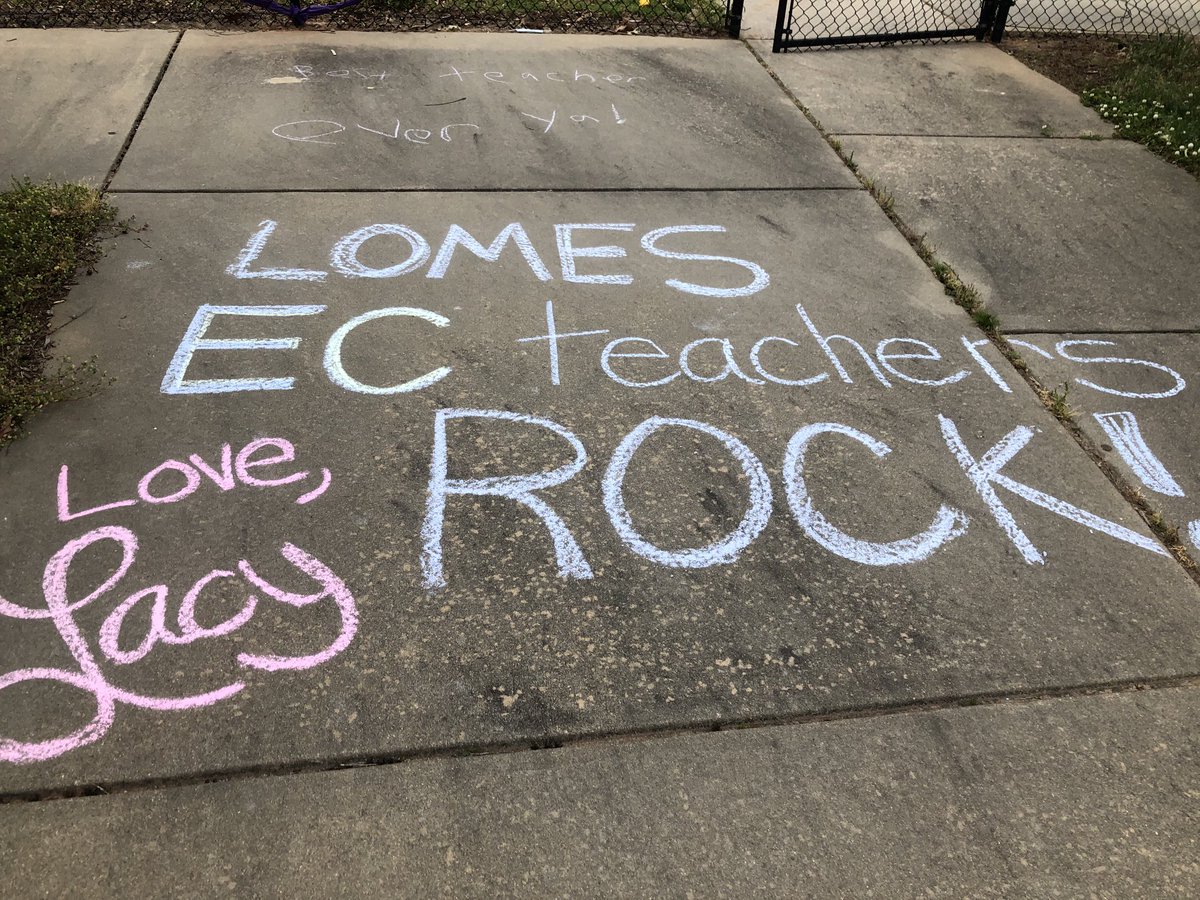 teacher
ever ya!
LOMES
EC teachers
ROCK!
Love,
Lacy